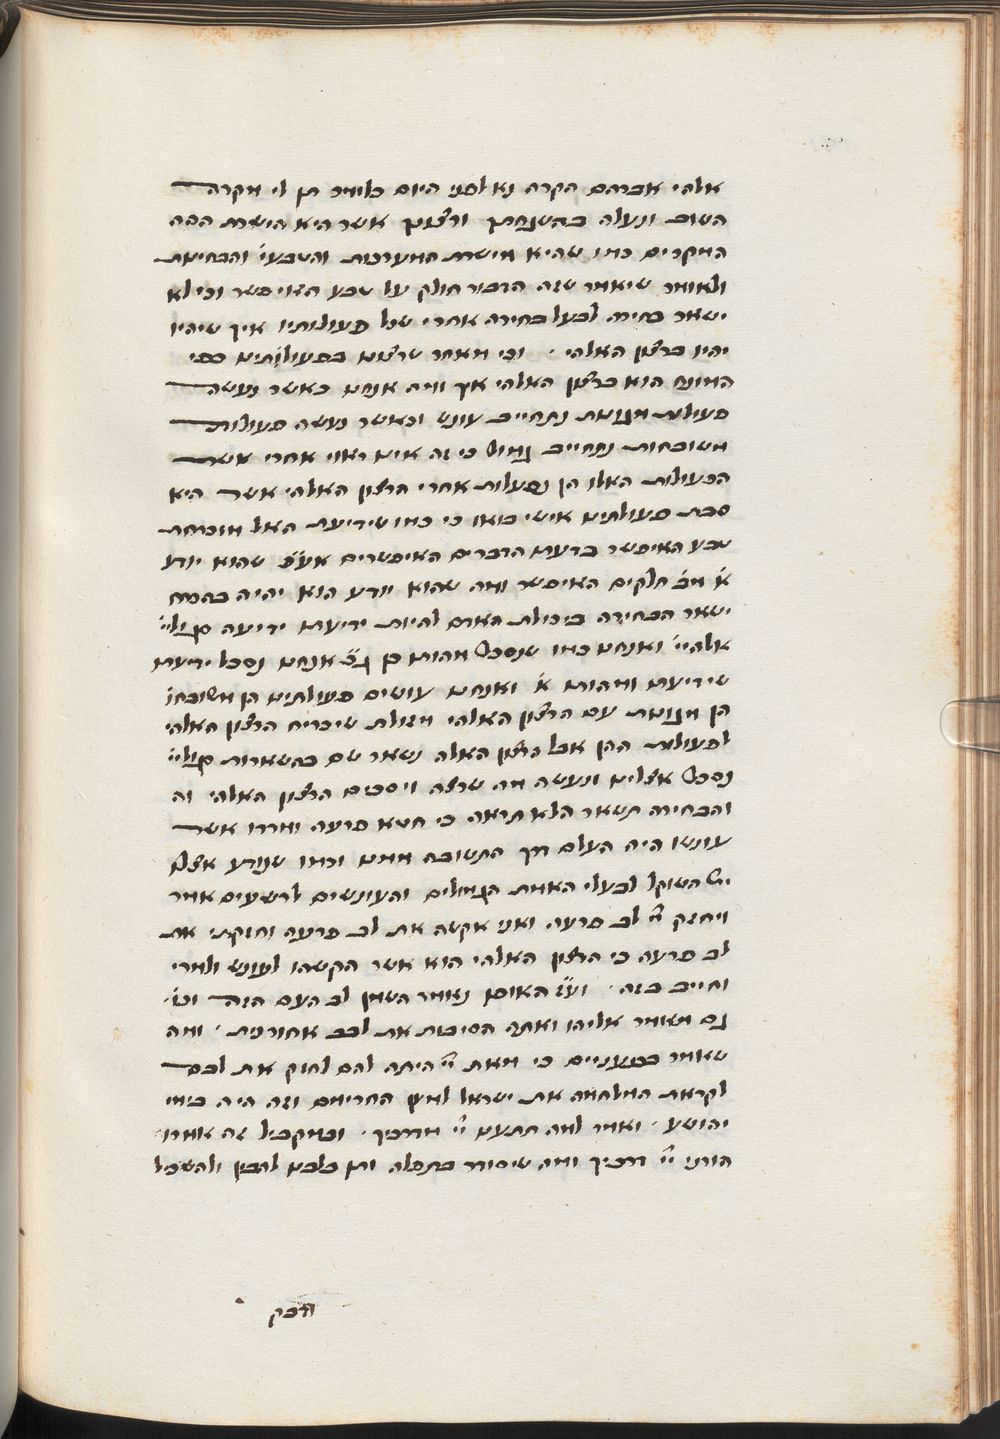 אלהי אברהם הקרה נא לפני היום כלומר תן לי מקרה
הטוב ונעלה בהשגחתך ורצונך אשר היא הישרת הבה
המקרים כמו שהיא מישרת המערכות והטבעי׳ והבחירות
ולאומר שיאמר שזה הדבור חולק על טבע האיפשר וכי לא
ישאר בחירה לבעל בחירה אחרי שכל פעולותיו איך שיהיו
יהיו ברצון האלהי · וכי מאחר שרצונם בפעולותם כפי
המונח הוא ברצון האלהי איך ומה אנחנו כאשר נעשה
פעולות מגונות נתחייב עונש וכאשר נעשה פעולות
משובחות נתחייב גמול כי זה אינו ראוי אחרי אשר
הפעולות האלו הן נפעלות אחרי הרצון האלהי אשר היא
סבת פעולתינו אישי בואו כי כמו שידיעת האל מונחת
טבע האיפשר בדעתו הדברים האיפשרים אע״פ שהוא יודע
א׳ מב׳ חלקים האיפשר ומה שהוא יודע הוא יהיה בהכרח
ישאר הבחירה ביכולת האדם להיות ידיעתו ידיעה
אלהיי׳ ואנחנו כמו שנסכל מהותו כן ג״כ אנחנו נסכל ידיעת
שידיעתו ומהותו א׳ ואנחנו עושים פעולתינו הן משובחו׳
הן מגונות עם הרצון האלהי מזולת שיכריח הרצון האלהי
לפעולות ההן אבל הרצון האלה נשאר שם בהשארות
נסכל אצלינו ונעשה מה שרצה ויסכים הרצון האלהי וה
והבחירה תשאר הלא תראה כי חטא פרעה ומרדו אשר
עונשו היה העלם דרך התשובה ממנו וכמו שנודע אצל
השוקל לבעלי האמת הגמולים והעונשים לרשעים אמר
ויחזק יי׳ לב פרעה ואני אקשה את לב פרעה וחזקתי את
לב פרעה כי הרצון האלהי הוא אשר הקשהו לעונש ולמרי
וחייב בזה · ועז״ האופן נאמר השמן לב העם הזה וכו׳
גם מאמר אליהו ואתה הסיבות את לבב אחורנית · ומה
שאמר בכנעניים כי מאת יי׳ היתה להם לחזק את לבם
לקראת המלחמה את ישראל למען החרימם וזה היה בימי
יהושע · ואמר למה תתענו יי׳ מדרכיך · ובמקביל זה אמרו
הורני יי׳ דרכיך ומה שיסודר בתפלה ותן בלבנו להבין ולהשכיל
הדבק